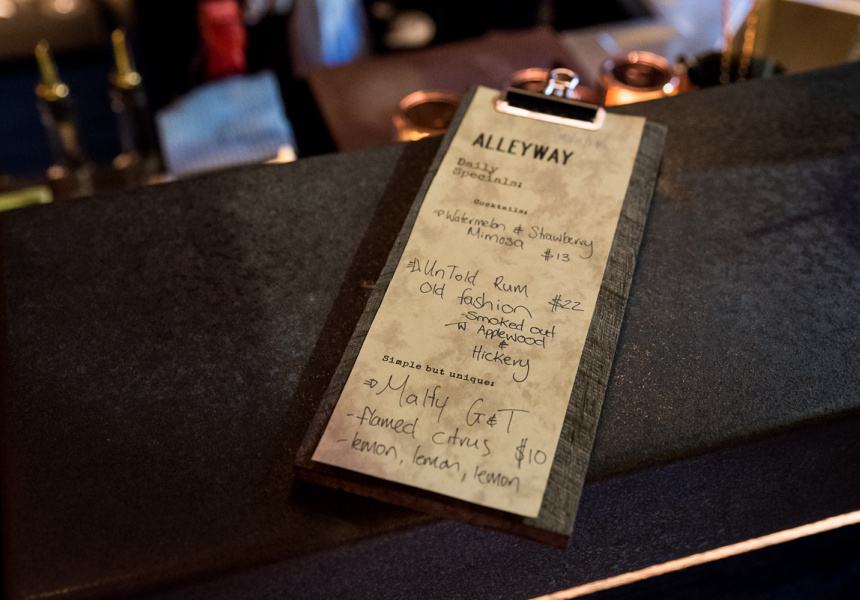 ALLEYWAY
Daily
Specials:
Cocktails:
⇒ Watermelon & Strawberry
Mimosa $13
⇒ UnTold Rum $22
Old fashion
- Smoked out
W Applewood
&
Hickery
Simple but unique:
⇒ Malfy G&T
- flamed citrus $10
- lemon, lemon, lemon